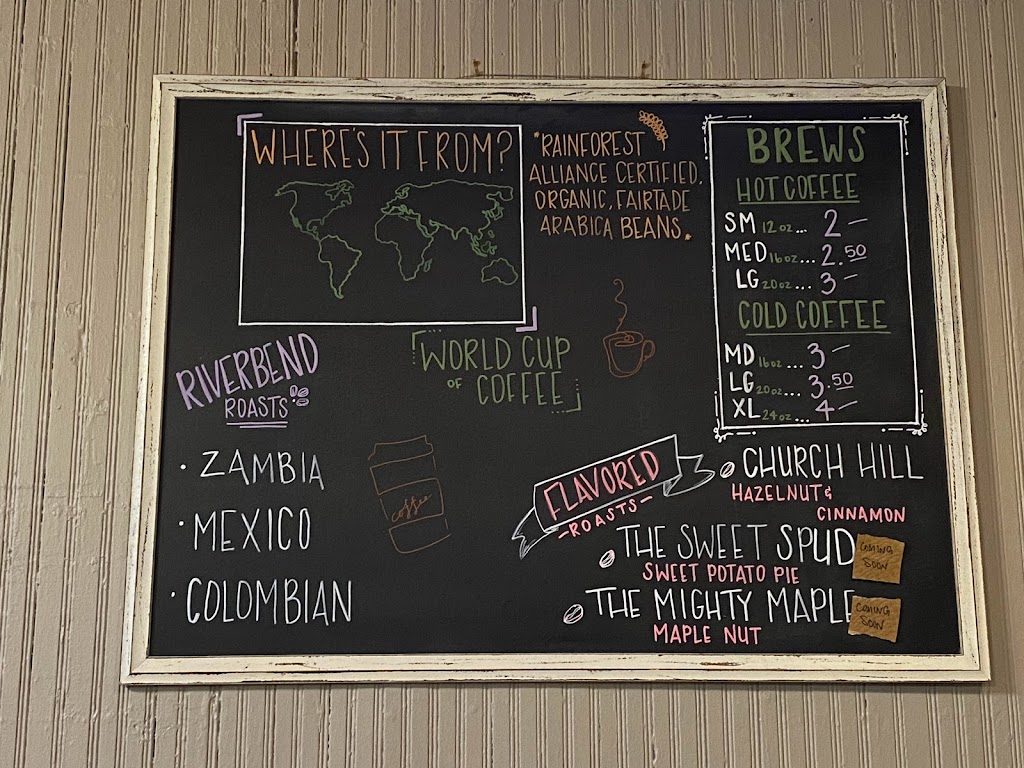 WHERE'S IT FROM?
*RAINFOREST
ALLIANCE CERTIFIED,
ORGANIC, FAIRTADE
ARABICA BEANS.*
BREWS
HOT COFFEE
SM 12oz... 2 —
MED 16oz... 2.50
LG 20oz... 3 —
COLD COFFEE
MD 16oz... 3 —
LG 20oz... 3.50
XL 24oz... 4 —
RIVERBEND
ROASTS
WORLD CUP
OF COFFEE
• ZAMBIA
• MEXICO
• COLOMBIAN
coffee
FLAVORED
-ROASTS-
CHURCH HILL
HAZELNUT &
CINNAMON
THE SWEET SPUD
COMING
SOON
SWEET POTATO PIE
THE MIGHTY MAPLE
COMING
SOON
MAPLE NUT